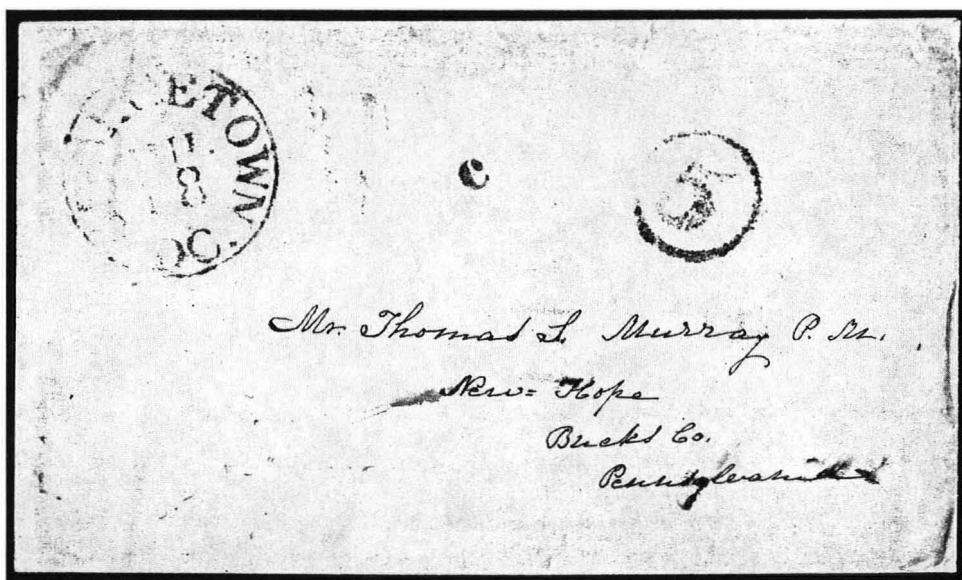 ETOWN
5
Mr. Thomas L. Murray P. M.
New= Hope
Bucks Co.
Pennsylvania